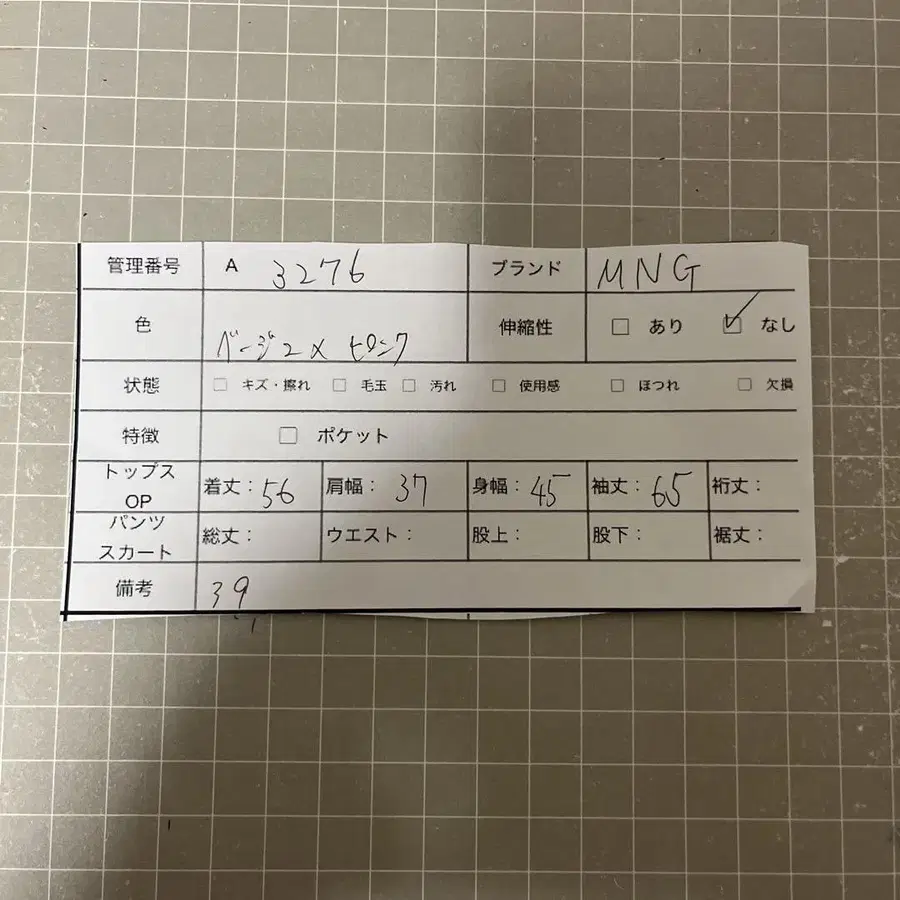 管理番号 A 3276 ブランド MNG
色 ベージュ×ピンク 伸縮性 □ あり ☑ なし
状態 □ キズ・擦れ □ 毛玉 □ 汚れ □ 使用感 □ ほつれ □ 欠損
特徴 □ ポケット
トップス OP 着丈：56 肩幅：37 身幅：45 袖丈：65 裄丈：
パンツ スカート 総丈： ウエスト： 股上： 股下： 裾丈：
備考 39